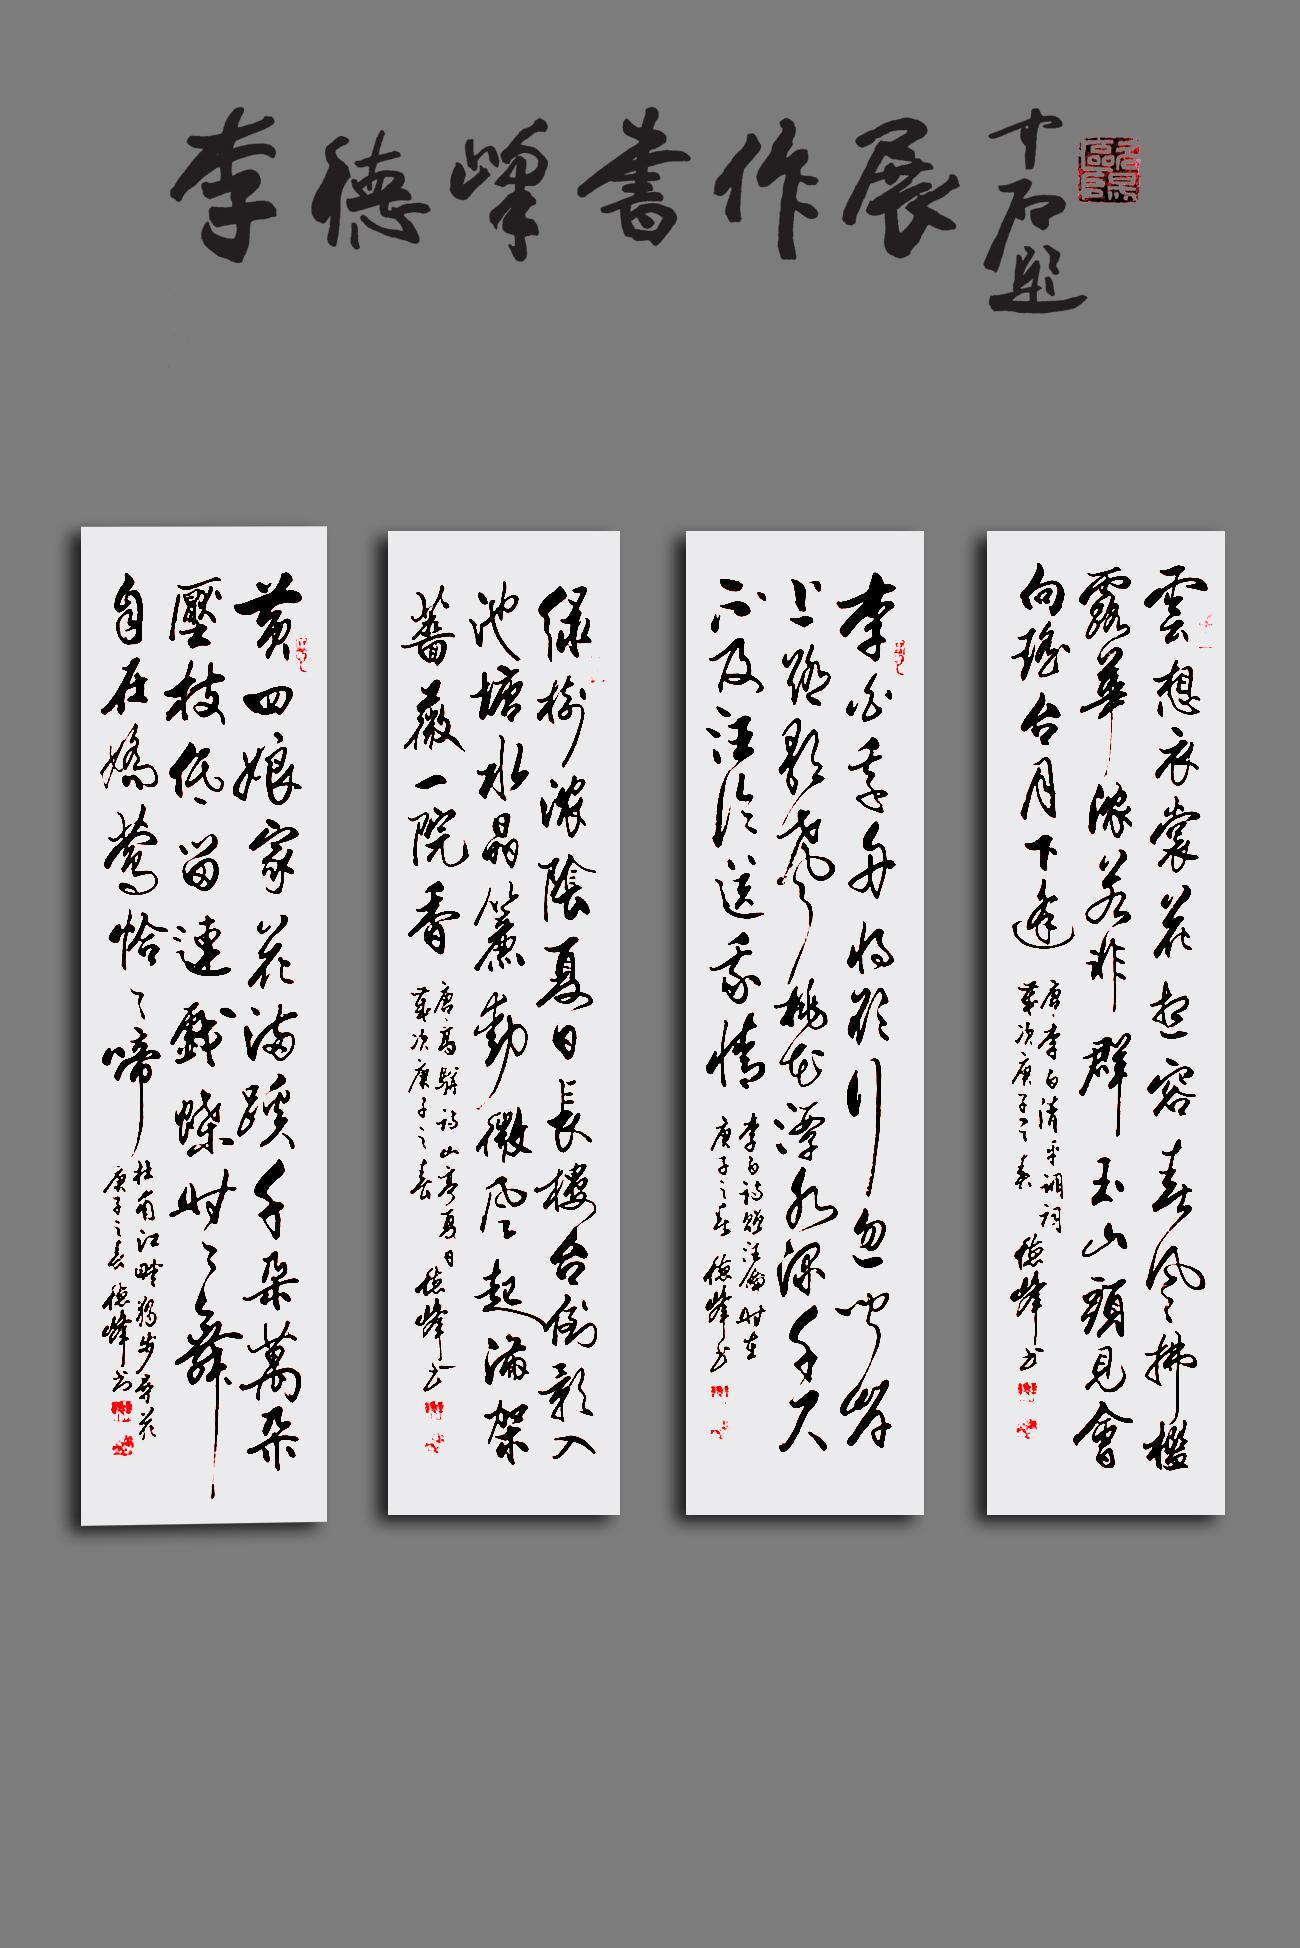 李德峰書作展
中石題
雲想衣裳花想容春風拂檻
露華濃若非群玉山頭見會
向瑤台月下逢
唐李白清平調詞
歲次庚子之春
德峰书
李白乘舟将欲行忽闻岸
上踏歌聲桃花潭水深千尺
不及汪伦送我情
李白詩赠汪倫时在
庚子之春
德峰书
绿樹浓陰夏日長樓台倒影入
池塘水晶簾動微风起滿架
薔薇一院香
唐高駢詩山亭夏日
歲次庚子之春
德峰书
黄四娘家花满蹊千朵萬朵
壓枝低留連戲蝶时々舞
自在嬌鶯恰々啼
杜甫江畔獨步尋花
庚子之春
德峰书